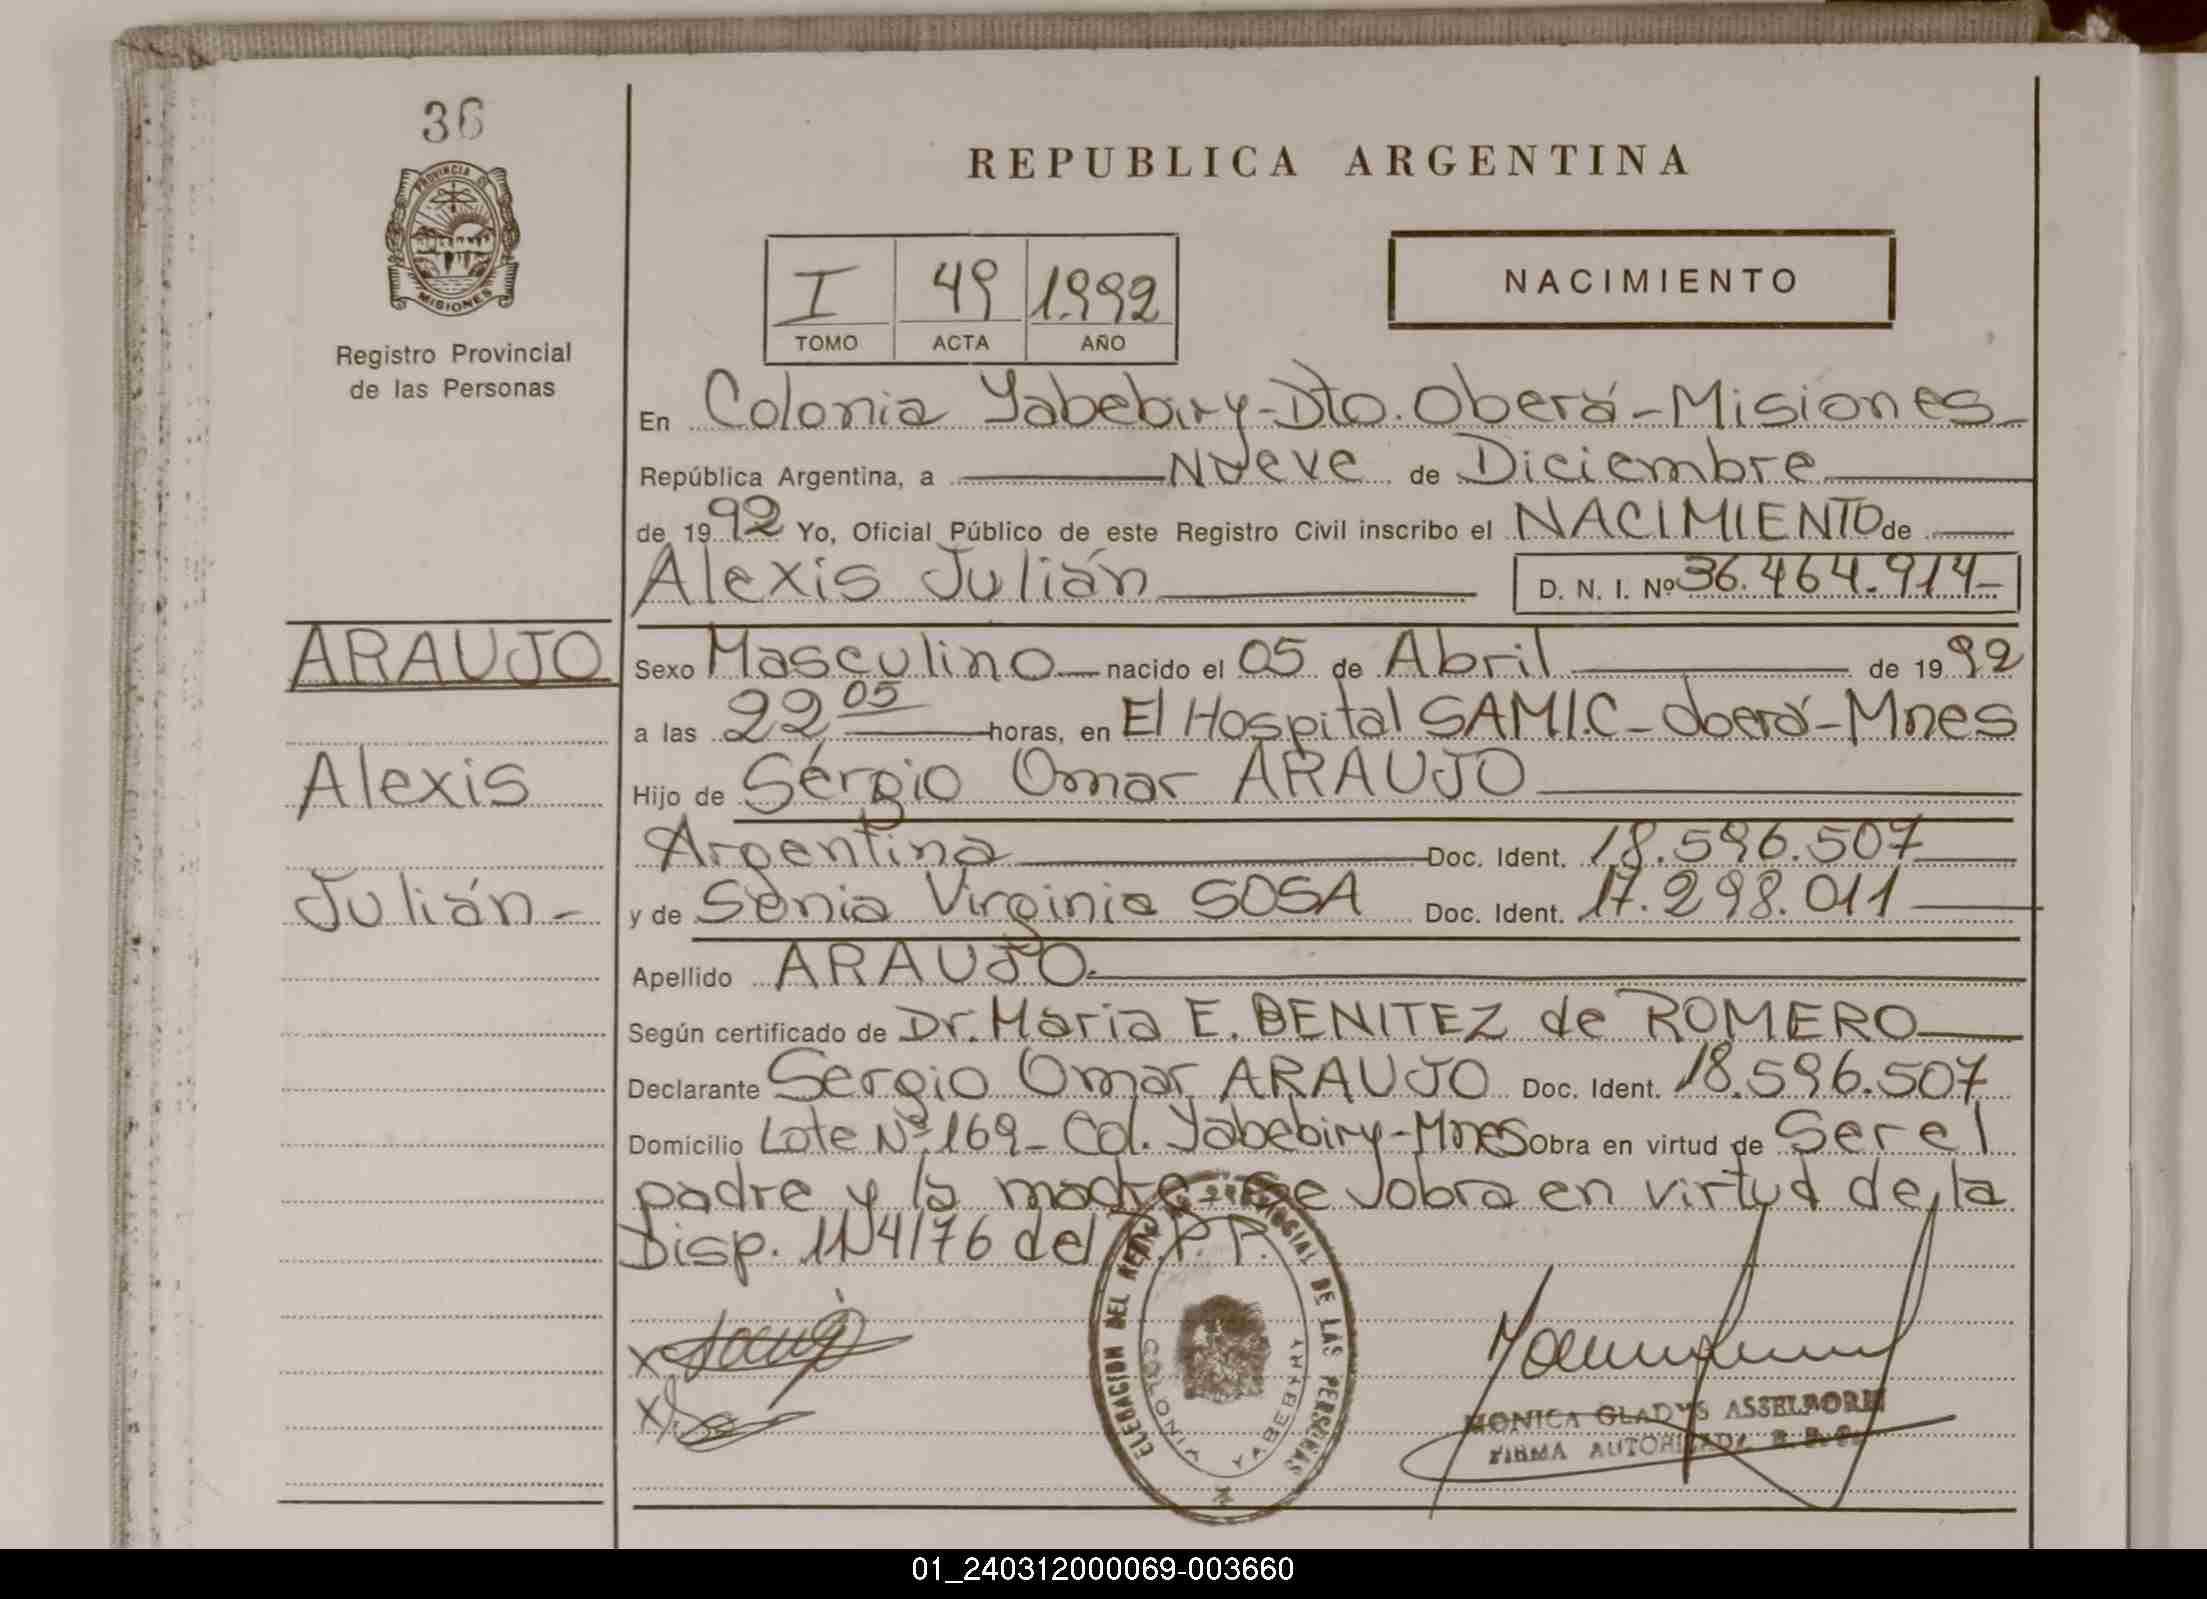 36
PROVINCIA DE
MISIONES
Registro Provincial
de las Personas
REPUBLICA ARGENTINA
I 49 1.992
TOMO ACTA AÑO
NACIMIENTO
En Colonia Yabebiry-Dto. Oberá-Misiones-
República Argentina, a Nueve de Diciembre
de 1992 Yo, Oficial Público de este Registro Civil inscribo el NACIMIENTO de
Alexis Julián D. N. I. Nº 36.464.914-
ARAUJO
Alexis
Julián-
Sexo Masculino nacido el 05 de Abril de 1992
a las 22 05 horas, en El Hospital SAMI.C-Oberá-Mnes
Hijo de Sergio Omar ARAUJO
Argentina Doc. Ident. 18.596.507
y de Sonia Virginia SOSA Doc. Ident. 17.298.011
Apellido ARAUJO.
Según certificado de Dr. Maria E. BENITEZ de ROMERO
Declarante Sergio Omar ARAUJO Doc. Ident. 18.596.507
Domicilio Lote Nº 169-Col. Yabebiry-Mnes Obra en virtud de Ser el
padre y la madre se obra en virtud de la
Disp. del R.P.P.
DELEGACION DEL REGISTRO PROVINCIAL DE LAS PERSONAS
COLONIA YABEBIRY
MONICA GLADYS ASSELBORN
FIRMA AUTORIZADA R. P. P.
01_240312000069-003660